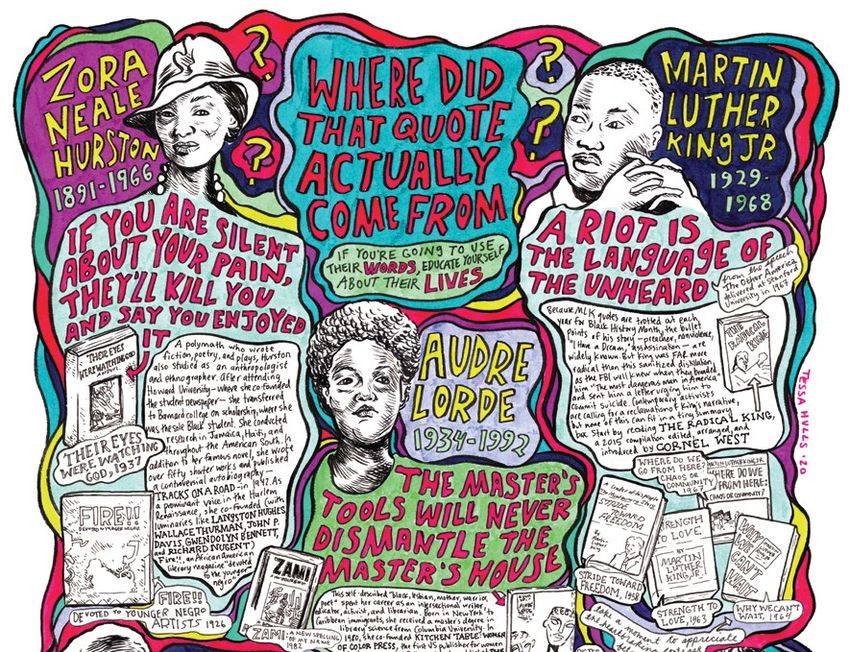 ZORA
NEALE
HURSTON
1891-1966
WHERE DID
THAT QUOTE
ACTUALLY
COME FROM
IF YOU'RE GOING TO USE
THEIR WORDS, EDUCATE YOURSELF
ABOUT THEIR LIVES
MARTIN
LUTHER
KING JR
1929-
1968
IF YOU ARE SILENT
ABOUT YOUR PAIN,
THEY'LL KILL YOU
AND SAY YOU ENJOYED
IT
A polymath who wrote
fiction, poetry, and plays, Hurston
also studied as an anthropologist
and ethnographer. After attending
Howard University—where she co-founded
the student newspaper—she transferred
to Barnard college on scholarship, where she
was the sole Black student. She conducted
research in Jamaica, Haiti, and
throughout the American South. In
addition to her famous novel, she wrote
over fifty shorter works and published
a controversial autobiography—
TRACKS ON A ROAD—in 1942. As
a prominent voice in the Harlem
Renaissance, she co-founded (with
luminaries like LANGSTON HUGHES,
WALLACE THURMAN, JOHN P.
DAVIS, GWENDOLYN BENNETT,
and RICHARD NUGENT)
Fire!!, an African American
literary magazine "devoted
to the younger
negro"
THEIR EYES
WERE WATCHING GOD
THEIR EYES
WERE WATCHING
GOD, 1937
FIRE!!
DEVOTED TO YOUNGER NEGRO
FIRE!!
DEVOTED TO YOUNGER NEGRO
ARTISTS 1926
AUDRE
LORDE
1934-1992
THE MASTER'S
TOOLS WILL NEVER
DISMANTLE THE
MASTER'S HOUSE
This self-described "black, lesbian, mother, warrior,
poet" spent her career as an intersectional writer,
educator, activist, and librarian. Born in New York to
Caribbean immigrants, she received a master's degree in
library science from Columbia University. In
1980, she co-founded KITCHEN TABLE: WOMEN
OF COLOR PRESS, the first US publisher for women
ZAMI
ZAMI: A NEW SPELLING
OF MY NAME
1982
A RIOT IS
THE LANGUAGE OF
THE UNHEARD
from the speech
The Other America
delivered at Stanford
University in 1967
Because MLK quotes are trotted out each
year for Black History Month, the bullet
points of his story—preacher, nonviolence,
"I Have a Dream," assassination—are
widely known. But King was FAR more
radical than this sanitized distillation
as the FBI well knew when they branded
him "The most dangerous man in America"
and sent him a letter urging him to
commit suicide. Contemporary activists
are calling for a reclamation of King's narrative,
but none of this can fit in a tiny summary
box. Start by reading THE RADICAL KING,
a 2015 compilation edited, arranged, and
introduced by CORNEL WEST
THE RADICAL KING
TESSA HULLS '20
WHERE DO WE
GO FROM HERE?
CHAOS OR
COMMUNITY
1967
MARTIN LUTHER KING, JR.
WHERE DO WE
GO FROM HERE:
CHAOS OR COMMUNITY?
STRIDE
TOWARD
FREEDOM
STRIDE TOWARD
FREEDOM, 1958
STRENGTH
TO LOVE
BY
MARTIN
LUTHER
KING, JR.
STRENGTH TO
LOVE, 1963
WHY
WE
CAN'T
WAIT
WHY WE CAN'T
WAIT, 1964
take a moment to appreciate